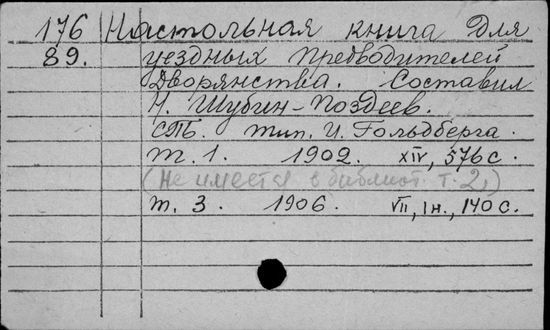 176 Настольная книга для
89. уездных предводителей
Дворянства. Составил
Н. Шубин-Поздеев.
СПБ. тип. И. Гольдберга.
Т. 1. 1902. XIV, 576 с.
(не имеется в библиот. т. 2,)
Т. 3. 1906. VII, 1 н., 140 с.